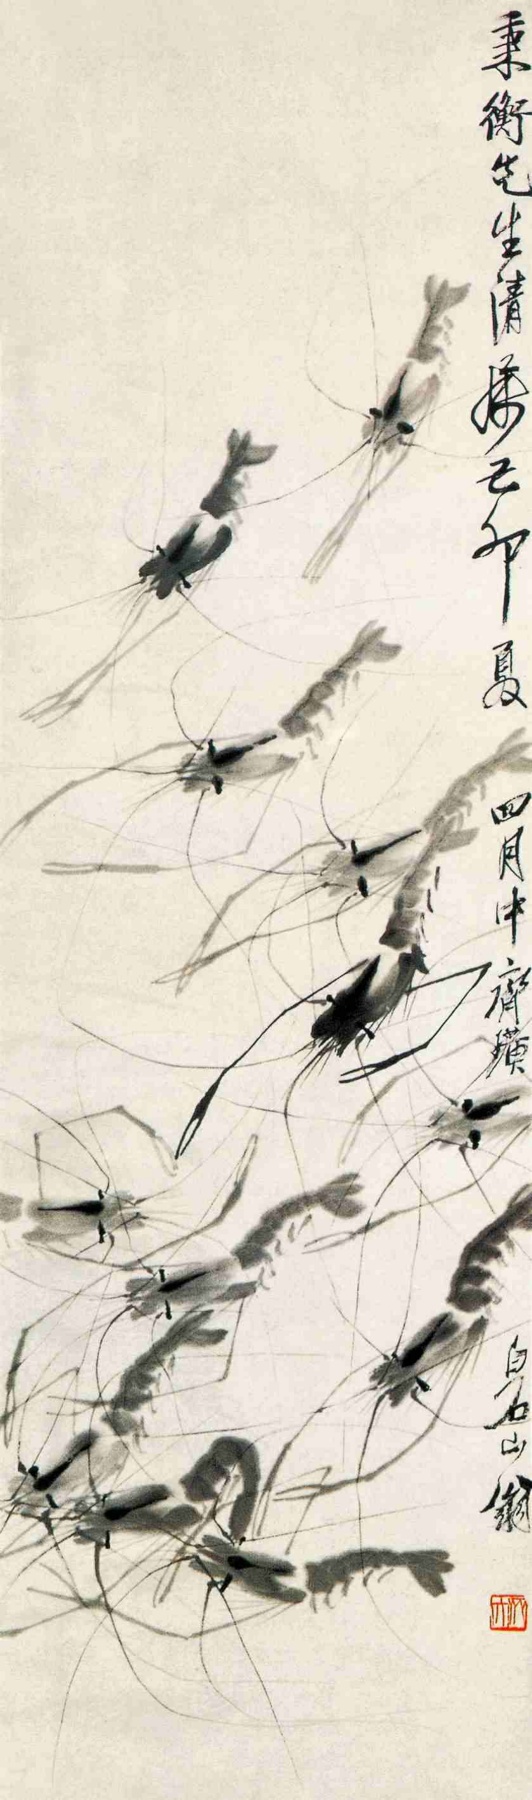 秉衡先生清属己卯夏四月中齊璜白石山翁